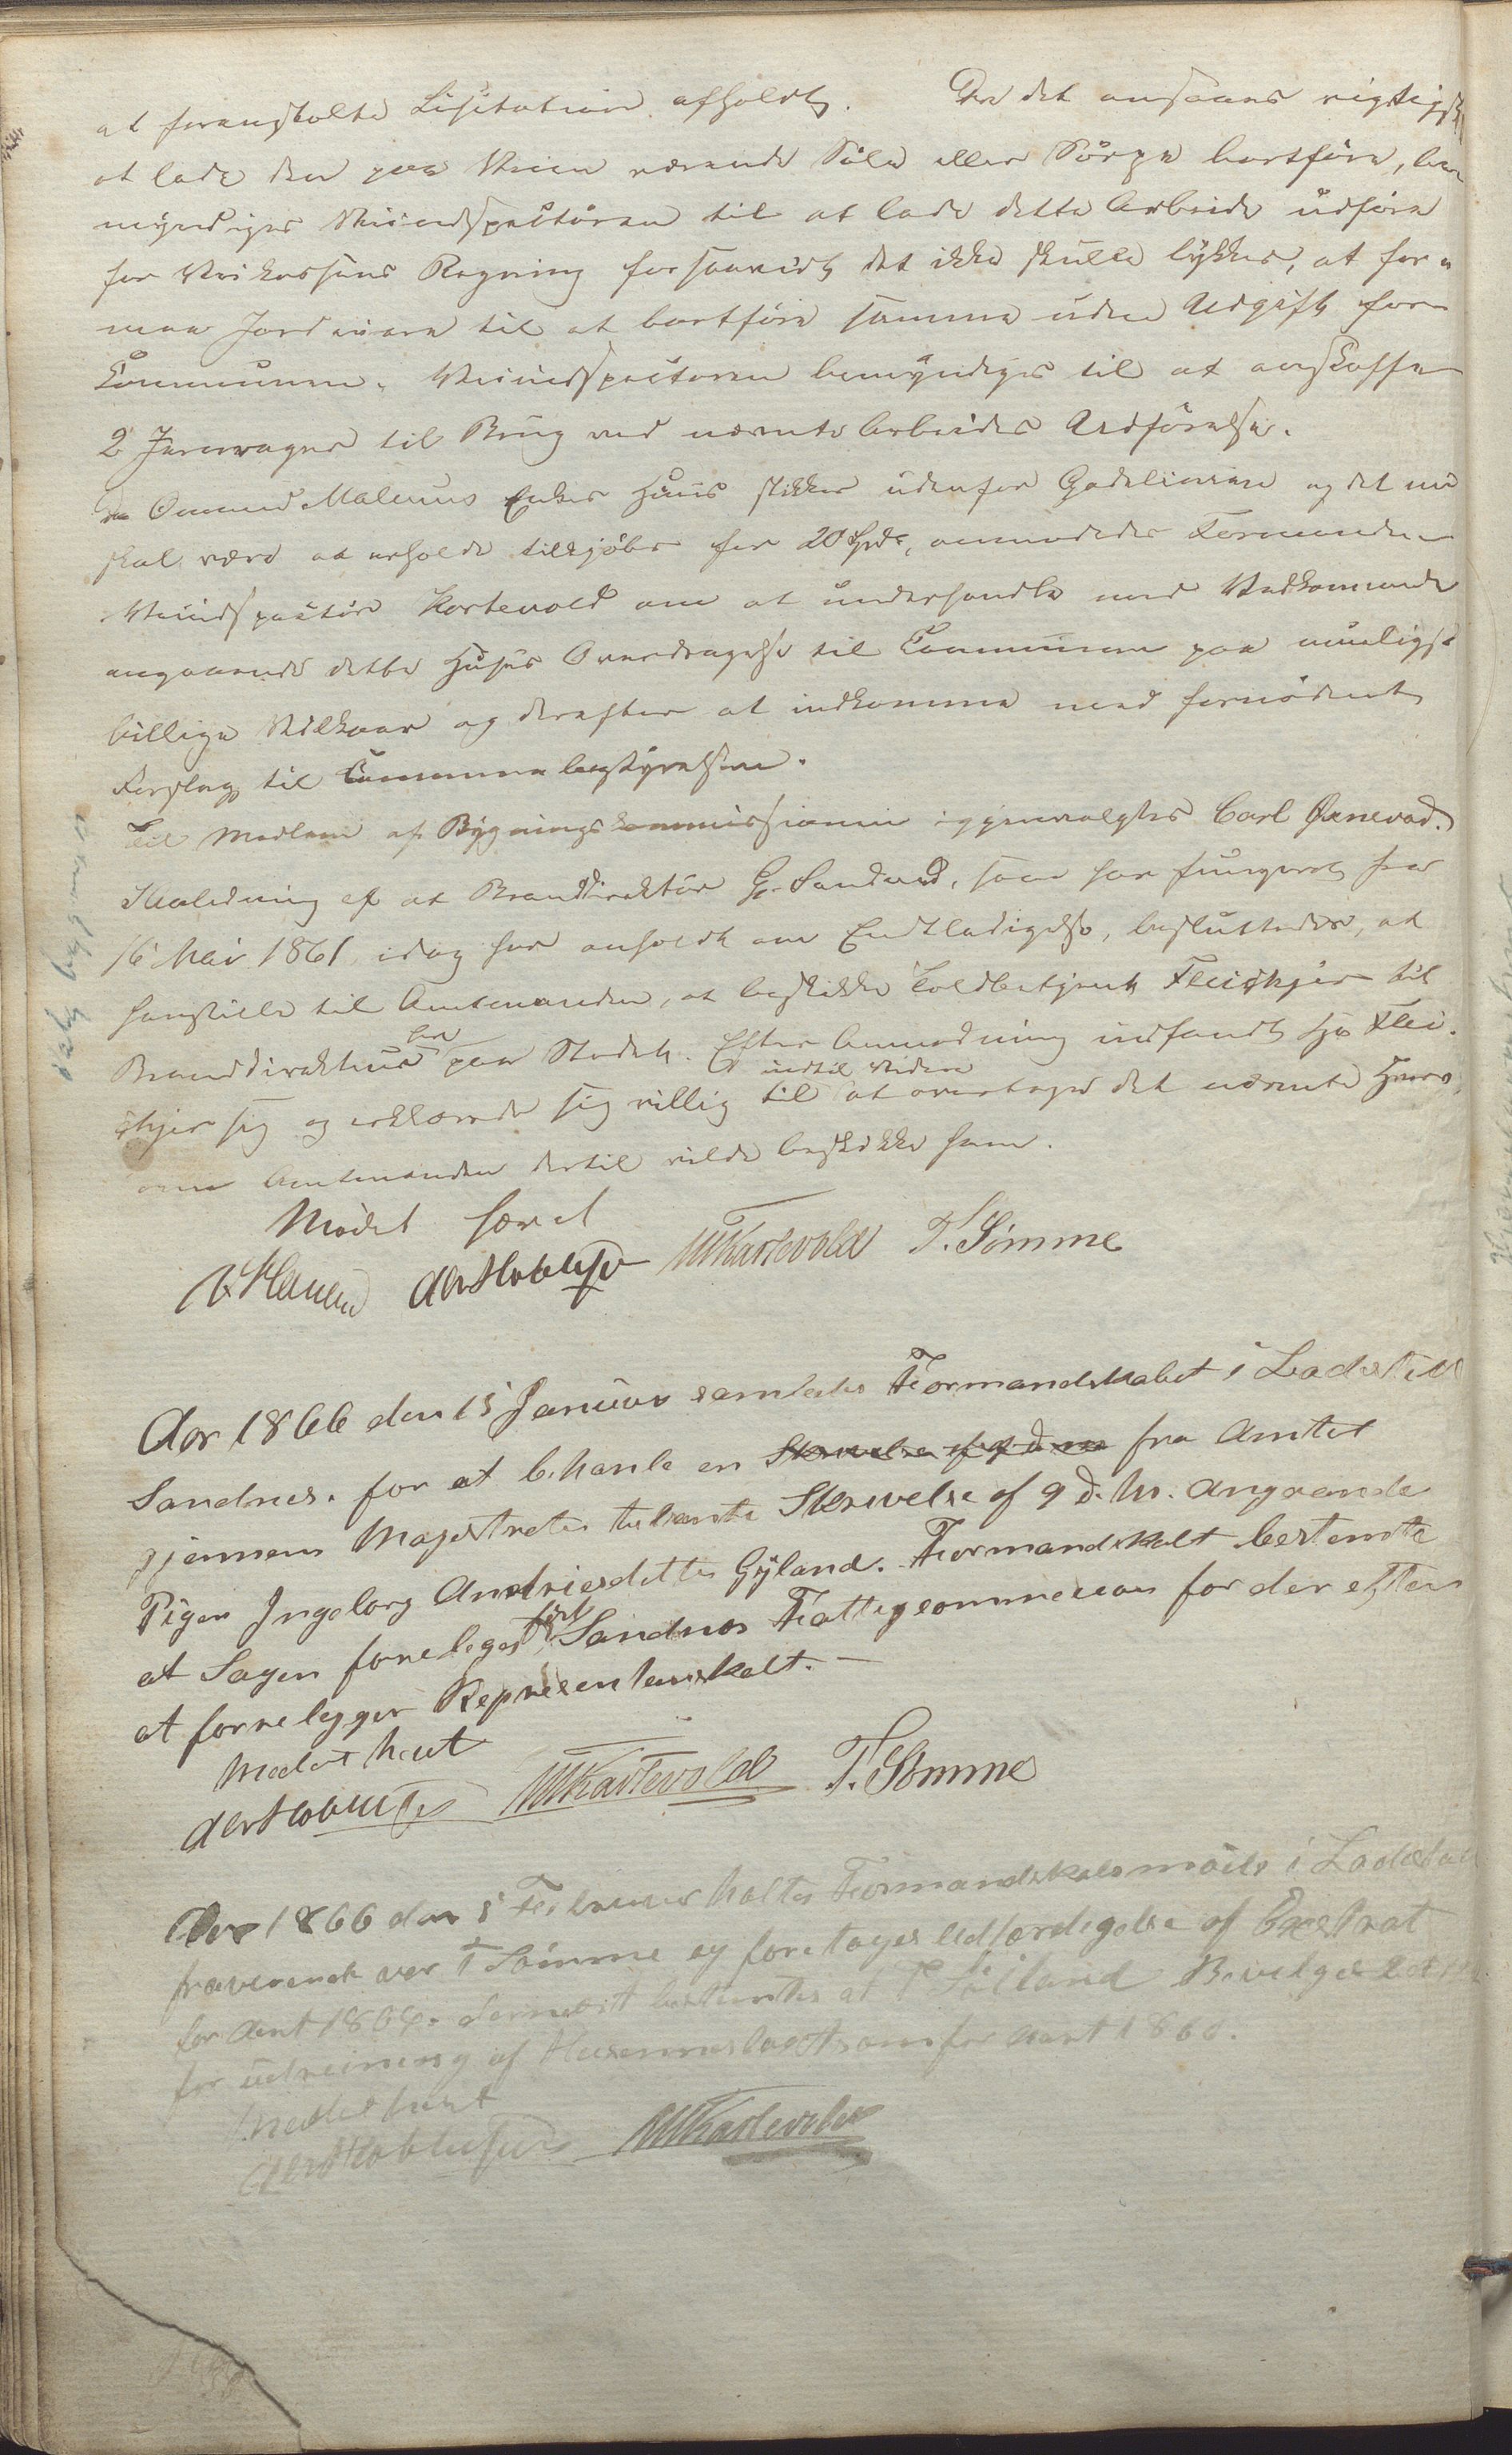 at foranstalte Lisitation afholdt. Da det ansaaes rigtigst
at lade den paa Veien værende Søle eller Sørpe bortføre, be
myndiges Veiinspektøren til at lade dette Arbeide udføre
for Veikassens Regning forsaavidt det ikke skulle lykkes, at for
maa Jordeiere til at bortføre samme uden Udgift for
Communen. Veiinspectøren bemyndiges til at anskaffe
2 Jernvogne til Brug ved nævnte Arbeides Udførelse.
Da Ommund Malenus Enkes Huus stikker udenfor Gadelinien og det nu
skal være at erholde tilkjøbs for 20 Spd, anmodedes Formanden
Veiinspectør Kartevold om at underhandle med Vedkommende
angaaende dette Huses Overdragelse til Communen paa muligst
billige Vilkaar og derefter at indkomme med fornødent
Forslag til Communebestyrelsen.
Til Medlem af Bygningskommissionen igjenvalgtes Carl Ørnevad.
I Anledning af at Branddirektør G. Sandved, som har fungeret fra
16 Mai 1861 idag har anholdt om Entledigelse, besluttedes, at
henstille til Amtmanden, at beskikke Toldbetjent Fleischer til
Branddirekteur her paa Stedet. Efter Anmodning indfandt Hr Flei
scher sig og erklærede sig villig til indtil videre at overtage det nævnte Hverv,
om Amtmanden dertil vilde beskikke ham.
Mødet hævet
MKartevold T. Sømme
Aar 1866 den 15 Januar samledes Formandskabet i Ladested
Sandnes. for at behanle en Skrivelse af 9 d. m. fra Amtet
gjennem Magestraten tilsente Skrivelse af 9 d. M. Angaaende
Pigen Ingeborg Andriesdatter Gyland. Formandskabt bestemte
at Sagen foreleges først Sandnes Fattigcommesion for der efter
at forrelegges Representanskabt. —
Mødet hævt
MKartevold T. Sømme
Aar 1866 den 5 Februar holtes Formandskabsmøde i Ladested
fraverende var T Sømme og foretoges Udfærdigelse af Exstrat
for Aaret 1864. dernest bestemtes at T Søiland Bevilges
for udreining af som for Aaret 1866.
Mødet hævt
MKartevold